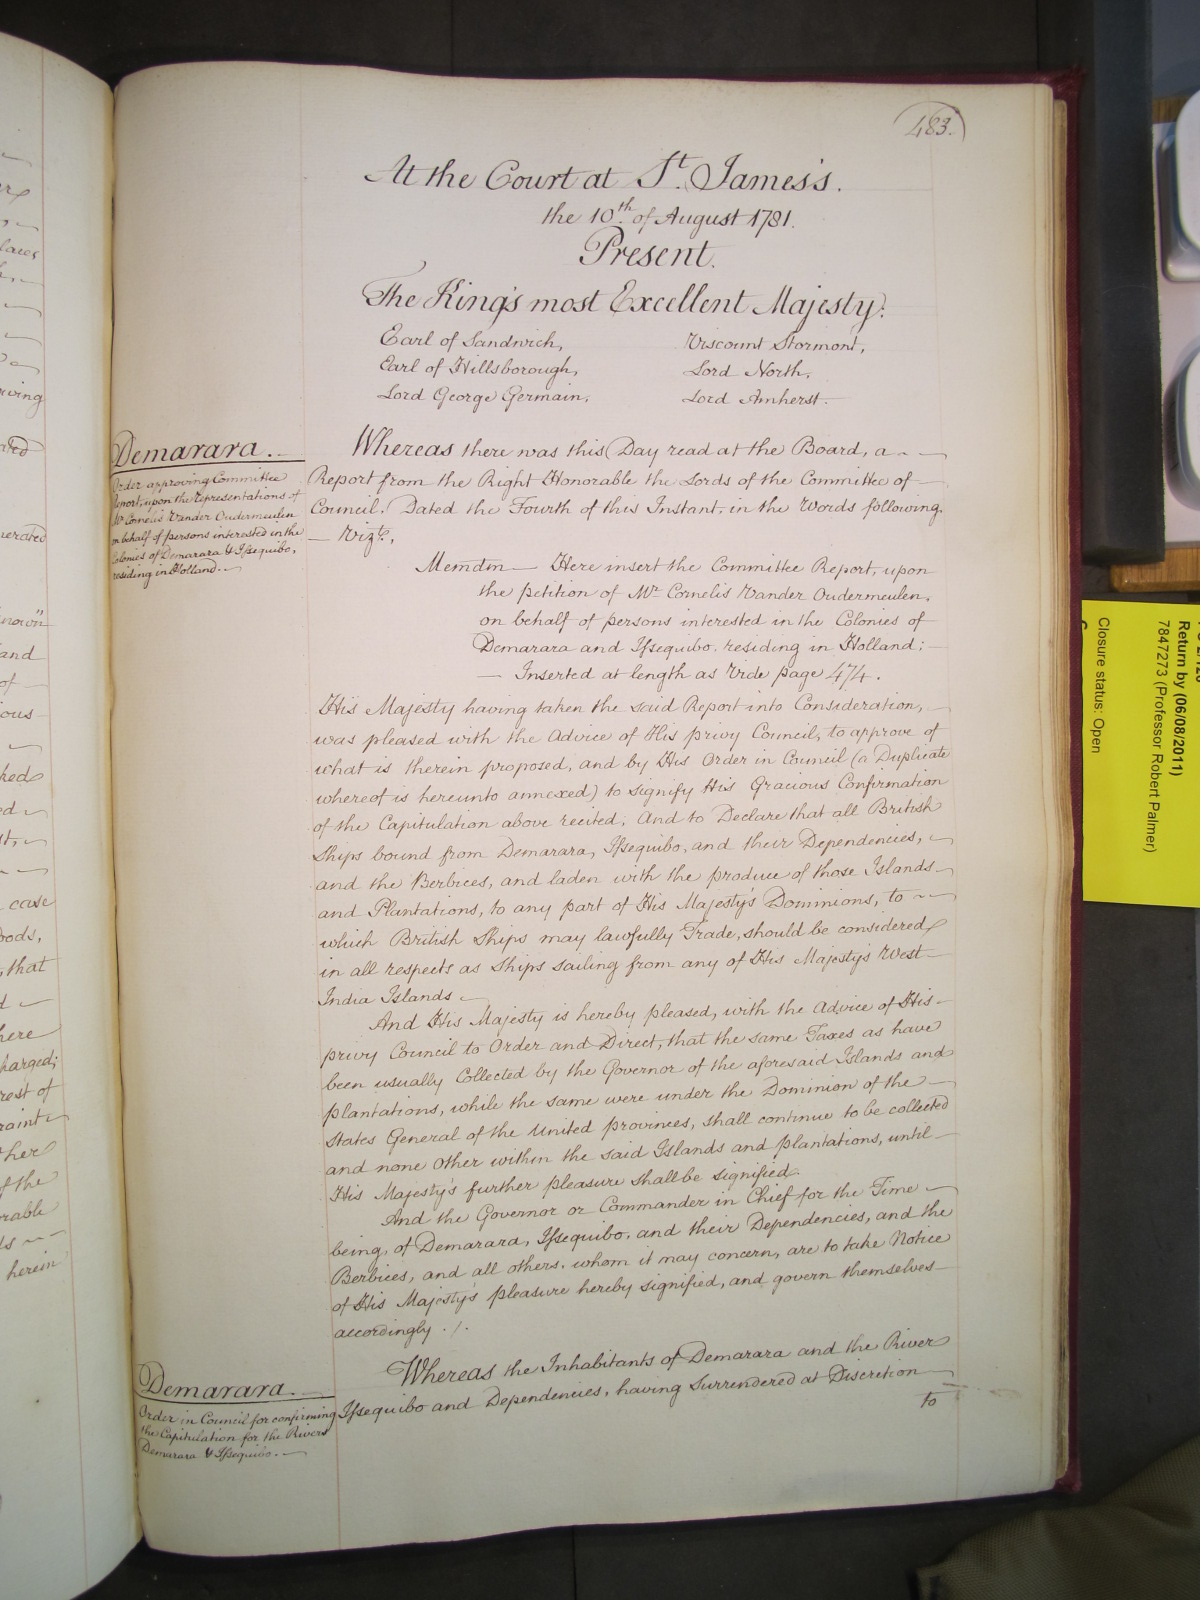 483.
At the Court at St. James's.
the 10th of August 1781.
Present.
The King's most Excellent Majesty:
Earl of Sandwich, Viscount Stormont,
Earl of Hillsborough, Lord North,
Lord George Germain, Lord Amherst.
Demarara.
Order approving Committee
Report, upon the representations of
Mr Cornelis Vander Oudermeulen
on behalf of persons interested in the
Colonies of Demarara & Issequibo,
residing in Holland.
Whereas there was this Day read at the Board, a
Report from the Right Honorable the Lords of the Committee of
Council, Dated the Fourth of this Instant, in the Words following
Vizt.,
Memdm Here insert the Committee Report, upon
the petition of Mr Cornelis Vander Oudermeulen,
on behalf of persons interested in the Colonies of
Demarara and Issequibo, residing in Holland;
Inserted at length as Vide page 474.
His Majesty having taken the said Report into Consideration,
was pleased with the Advice of His privy Council, to approve of
what is therein proposed, and by His Order in Council (a Duplicate
whereof is hereunto annexed) to signify His Gracious Confirmation
of the Capitulation above recited; And to Declare that all British
Ships bound from Demarara, Issequibo, and their Dependencies,
and the Berbices, and laden with the produce of those Islands
and Plantations, to any part of His Majesty's Dominions, to
which British Ships may lawfully Trade, should be considered
in all respects as Ships sailing from any of His Majesty's West
India Islands
And His Majesty is hereby pleased, with the Advice of His
privy Council to Order and Direct, that the same Taxes as have
been usually Collected by the Governor of the aforesaid Islands and
plantations, while the same were under the Dominion of the
States General of the United provinces, shall continue to be collected
and none other within the said Islands and plantations, until
His Majesty's further pleasure shall be signified.
And the Governor or Commander in Chief for the Time
being, of Demarara, Issequibo, and their Dependencies, and the
Berbices, and all others, whom it may concern, are to take Notice
of His Majesty's pleasure hereby signified, and govern themselves
accordingly ./.
Demarara.
Order in Council for confirming
the Capitulation for the Rivers
Demarara & Issequibo.
Whereas the Inhabitants of Demarara and the River
Issequibo and Dependencies, having Surrendered at Discretion
to
Return by (06/08/2011)
7847273 (Professor Robert Palmer)
Closure status: Open
laces
known"
and
of
case
that
here
harged;
rest of
raint
of the
herein